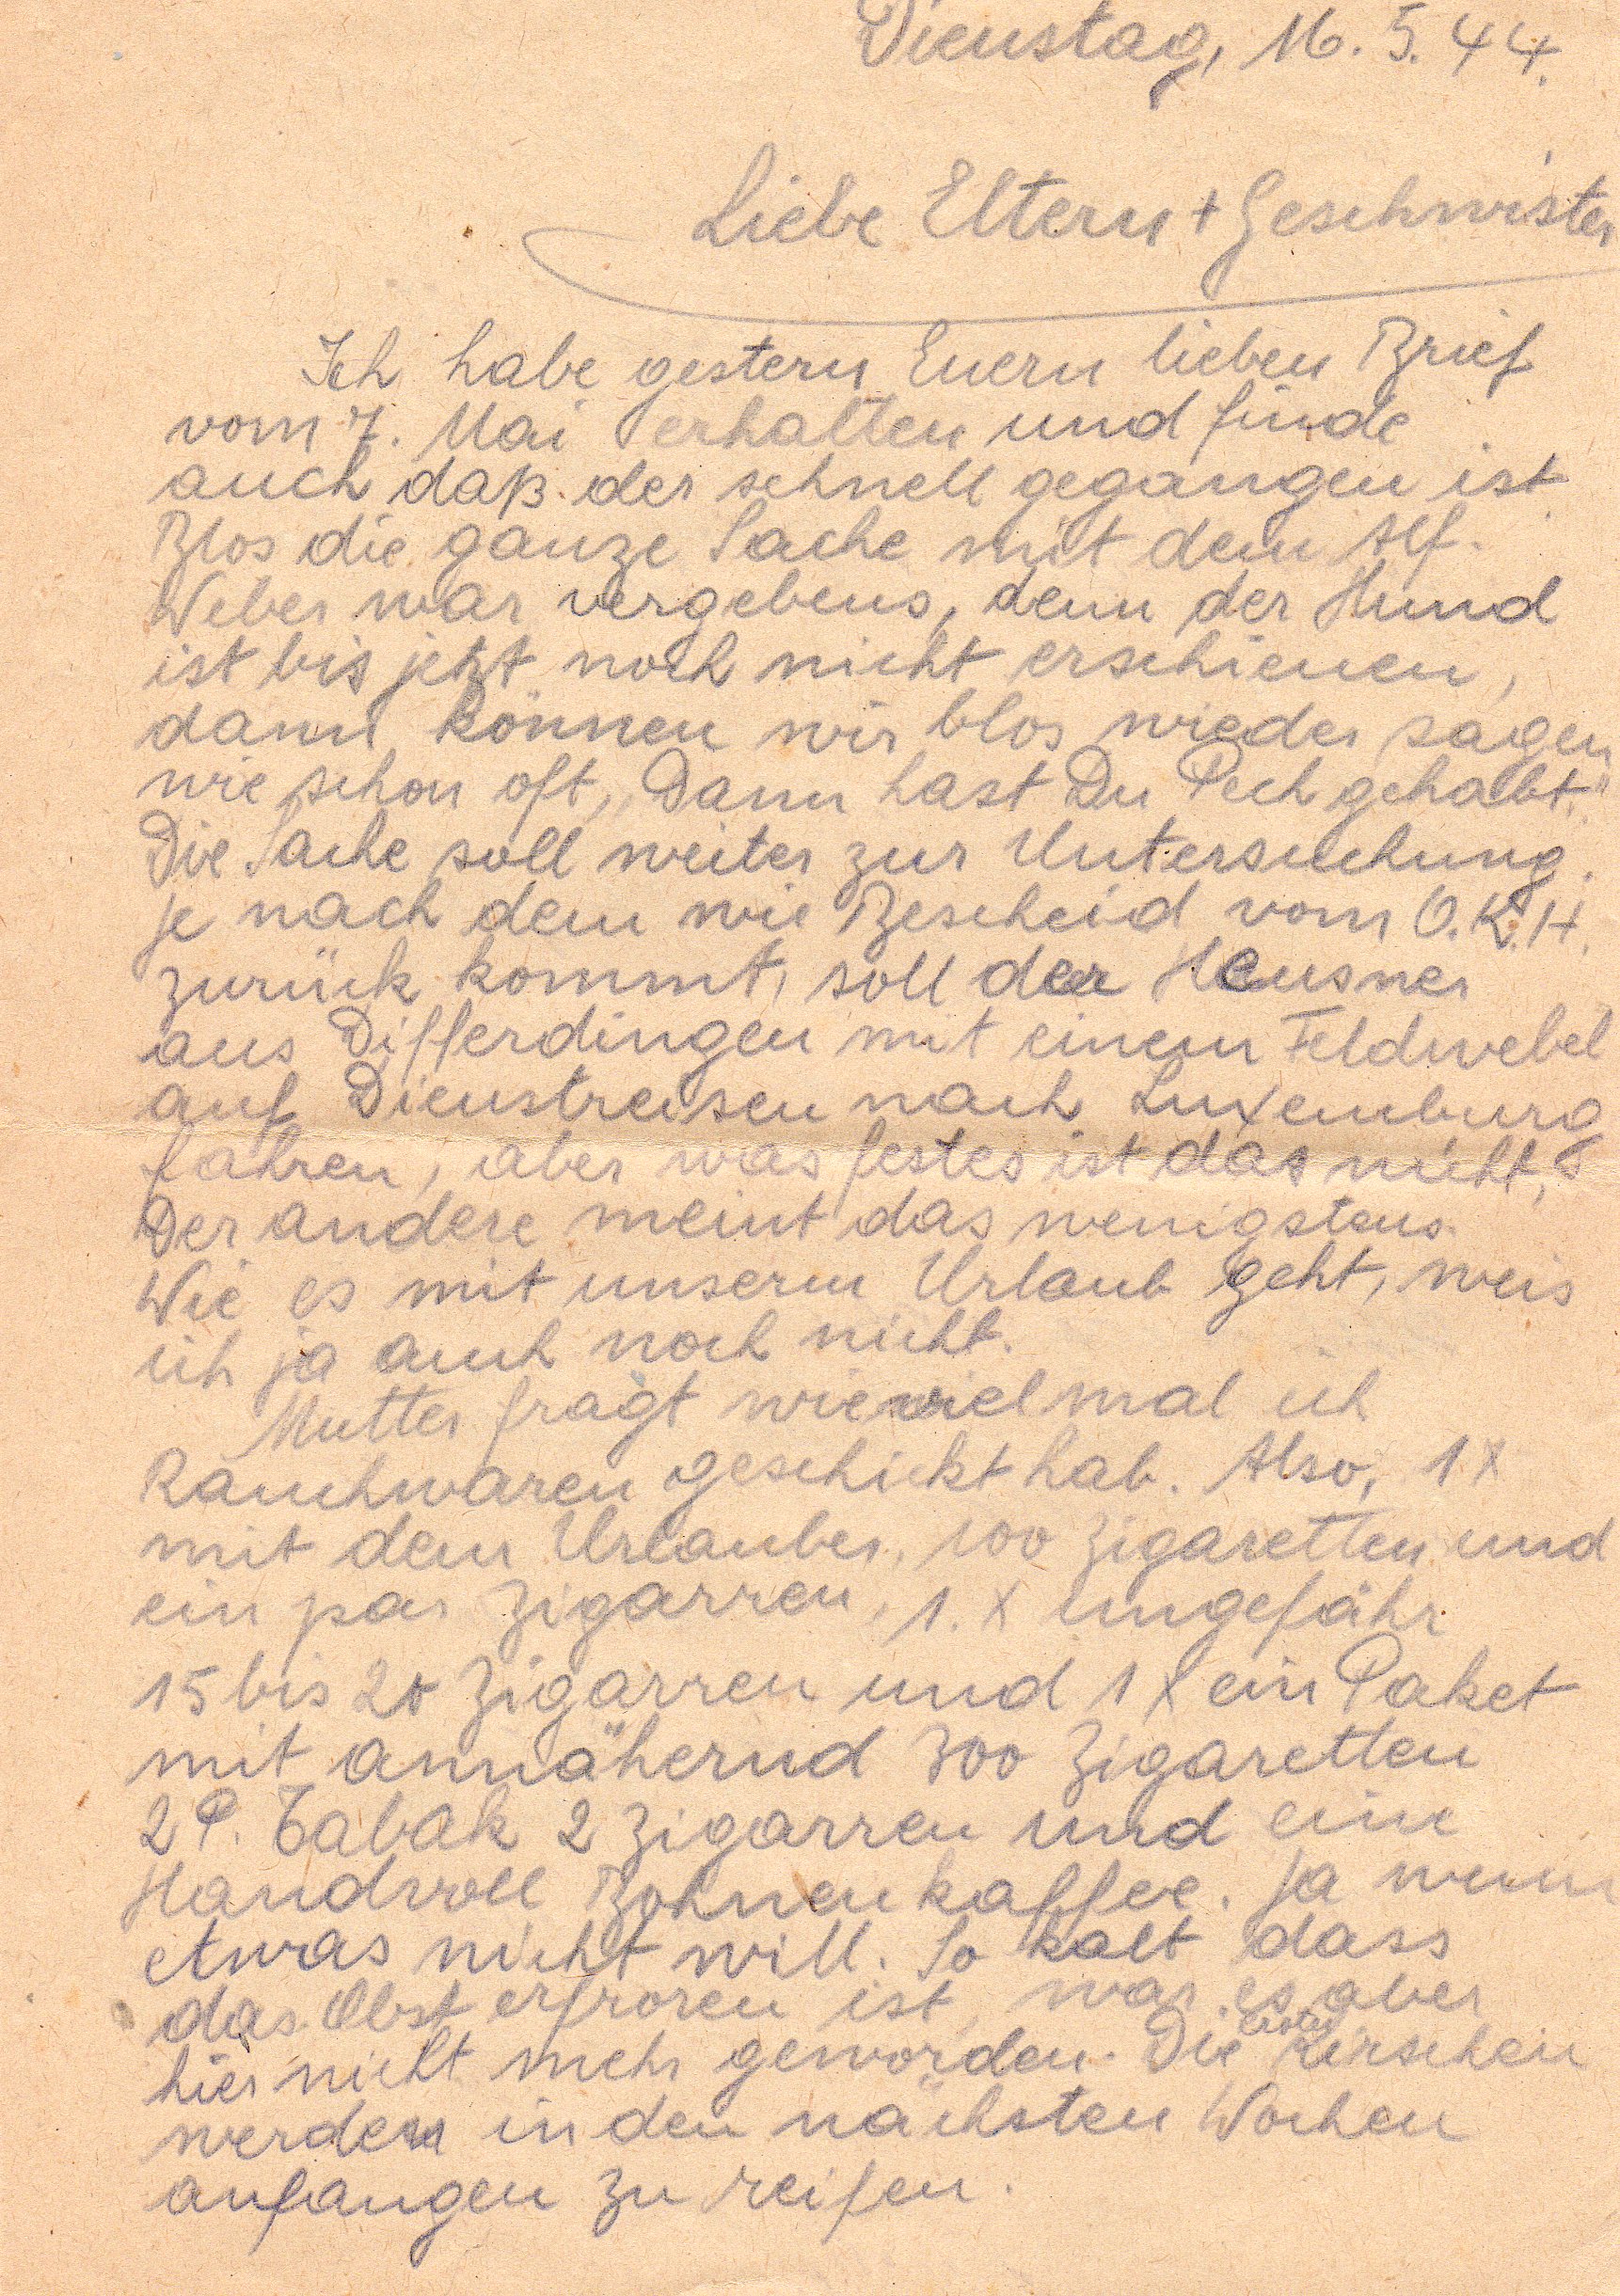 Dienstag, 16. 5. 44.
Liebe Eltern + Geschwister
Ich habe gestern Euern lieben Brief
vom 7. Mai erhalten und finde
auch daß der schnell gegangen ist
Blos die ganze Sache mit dem Alf.
Weber war vergebens, denn der Hund
ist bis jetzt noch nicht erschienen,
dann können wir blos wieder sagen
wie schon oft, „Dann hast Du Pech gehabt."
Die Sache soll weiter zur Untersuchung.
je nach dem wie Bescheid vom O.K.H.
zurück kommt, soll der Heusner
aus Differdingen mit einem Feldwebel
auf Dienstreisen nach Luxemburg
fahren, aber was festes ist das nicht,
Der andere meint das wenigstens.
Wie es mit unserm Urlaub geht, weis
ich ja auch noch nicht.
Mutter fragt wieviel mal ich
Rauchwaren geschickt hab. Also, 1 X
mit dem Urlauber, 100 Zigaretten und
ein par Zigarren, 1. X ungefähr
15 bis 20 Zigarren und 1 X ein Paket
mit annähernd 300 Zigaretten
2 P. Tabak 2 Zigarren und eine
Handvoll Bohnenkaffee. Ja wenn
etwas nicht will. So kalt dass
das Obst erfroren ist, war es aber
hier nicht mehr geworden. Die ersten Kirschen
werden in den nächsten Wochen
anfangen zu reifen.